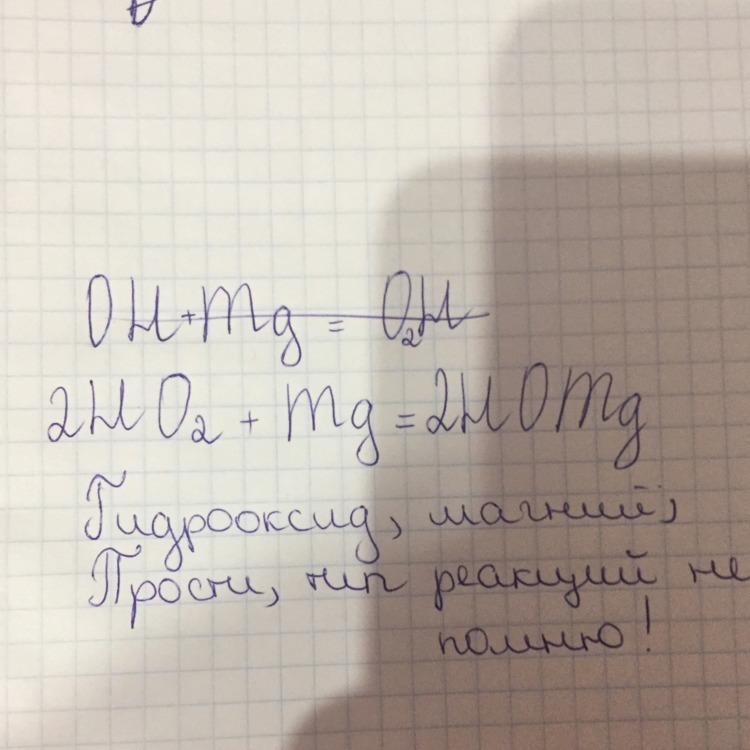 OH + Mg = O₂H
2HO₂ + Mg = 2HOMg
Гидрооксид, магний;
Прости, тип реакций не
помню!